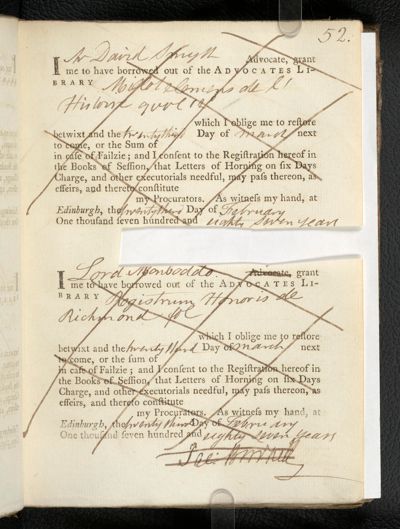 52.
I Mr David Smyth Advocate, grant
me to have borrowed out of the ADVOCATES LI-
BRARY Millot Elemens de l'
Histoire
which I oblige me to reſtore
betwixt and the twenty third Day of March next
to come, or the Sum of
in caſe of Failzie; and I conſent to the Regiſtration hereof in
the Books of Seſſion, that Letters of Horning on ſix Days
Charge, and other executorials needful, may paſs thereon, as
effeirs, and thereto conſtitute
my Procurators. As witneſs my hand, at
Edinburgh, the twenty third Day of February
One thouſand ſeven hundred and eighty seven years
I Lord Monboddo Advocate, grant
me to have borrowed out of the ADVOCATES LI-
BRARY Registrum Honoris de
Richmond fol
which I oblige me to reſtore
betwixt and the twenty third Day of March next
to come, or the ſum of
in caſe of Failzie; and I conſent to the Regiſtration hereof in
the Books of Seſſion, that Letters of Horning on ſix Days
Charge, and other executorials needful, may paſs thereon, as
effeirs, and thereto conſtitute
my Procurators. As witneſs my hand, at
Edinburgh, the twenty third Day of February
One thouſand ſeven hundred and eighty seven years
Jas: Burnett